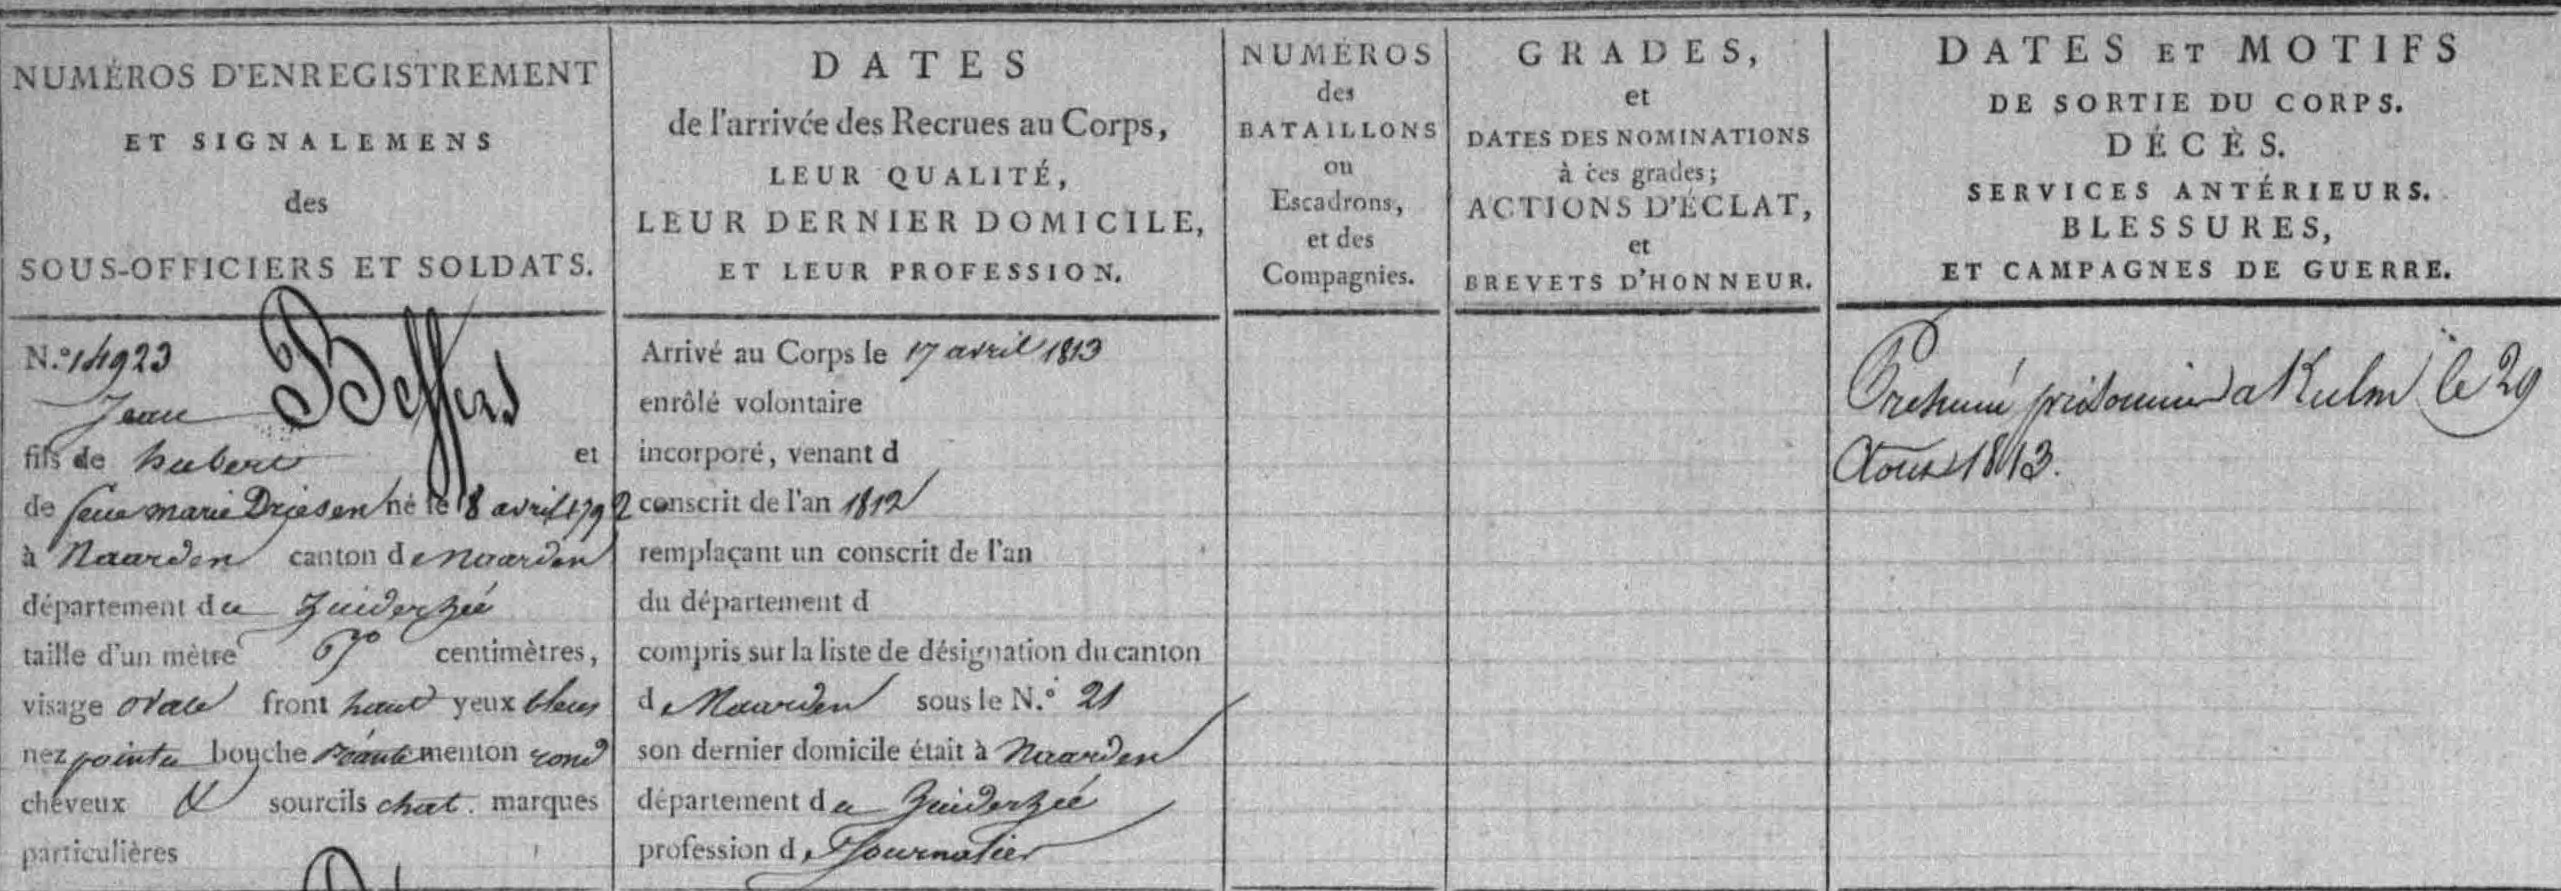 NUMÉROS D'ENREGISTREMENT
ET SIGNALEMENS
des
SOUS-OFFICIERS ET SOLDATS.
DATES
de l'arrivée des Recrues au Corps,
LEUR QUALITÉ,
LEUR DERNIER DOMICILE,
ET LEUR PROFESSION.
NUMÉROS
des
BATAILLONS
ou
Escadrons,
et des
Compagnies.
GRADES,
et
DATES DES NOMINATIONS
à ces grades;
ACTIONS D'ÉCLAT,
et
BREVETS D'HONNEUR.
DATES ET MOTIFS
DE SORTIE DU CORPS.
DÉCÈS.
SERVICES ANTÉRIEURS.
BLESSURES,
ET CAMPAGNES DE GUERRE.
N.º 14923
Jean Beffers
fils de hubert et
de feue marie Driesen né le 18 avril 1792
à Naarden canton de Naarden
département du Zuiderzée
taille d'un mètre 670 centimètres,
visage ovale front haut yeux bleus
nez pointu bouche menton rond
cheveux & sourcils chat. marques
particulières
Arrivé au Corps le 17 avril 1813
enrôlé volontaire
incorporé, venant d
conscrit de l'an 1812
remplaçant un conscrit de l'an
du département d
compris sur la liste de désignation du canton
de Naarden sous le N.º 21
son dernier domicile était à Naarden
département du Zuiderzée
profession de Journalier
Présumé prisonnier a Kulm le 29
Aoust 1813.